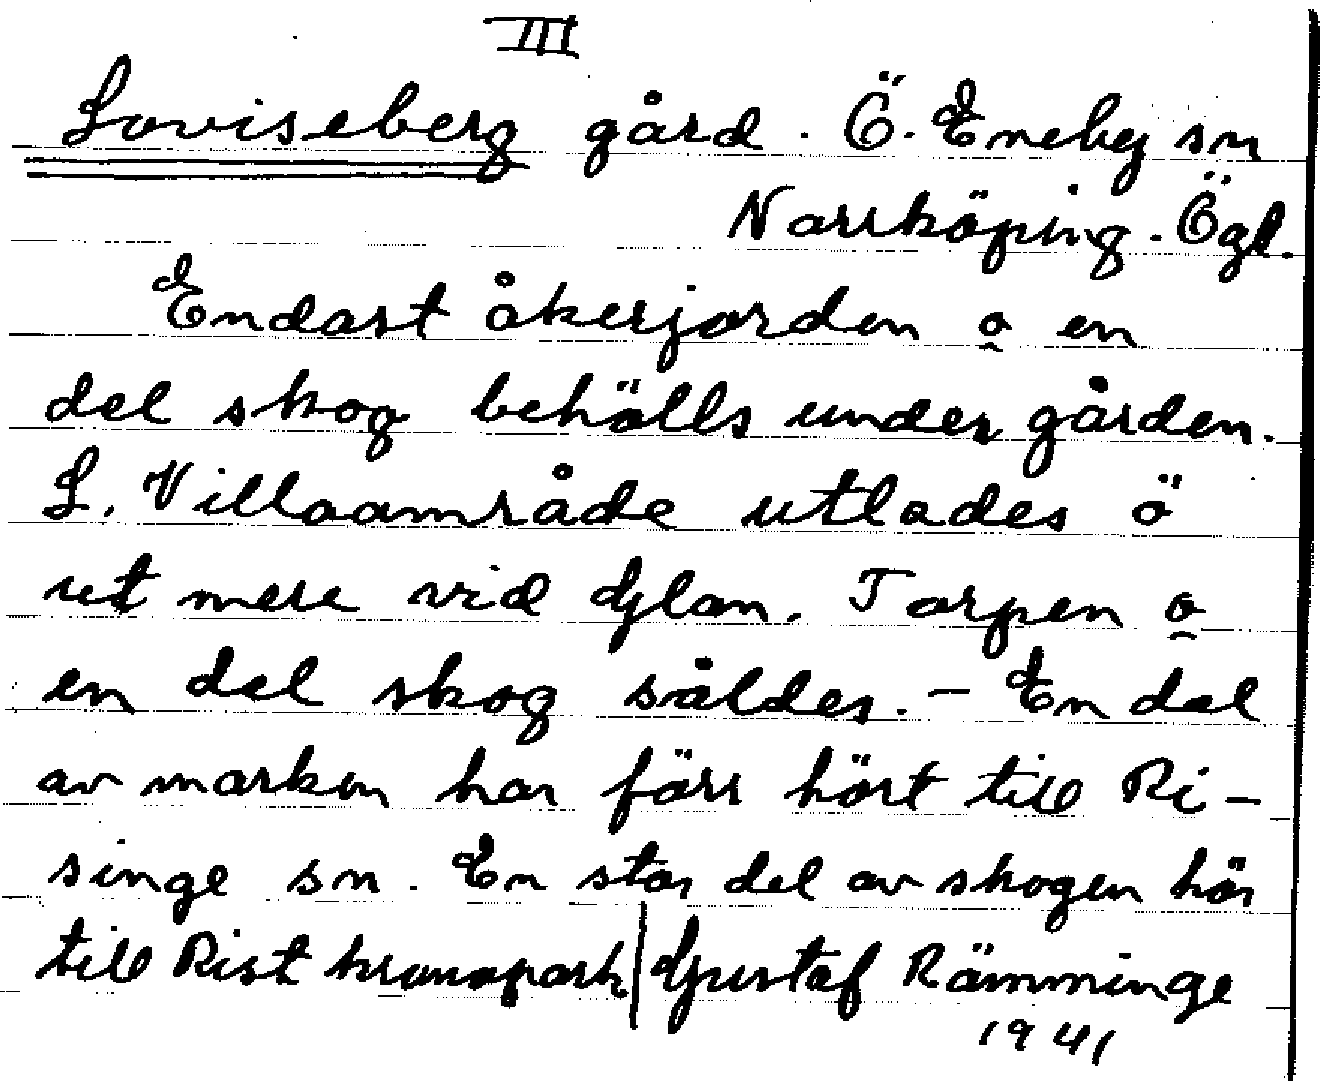 III
Loviseberg gård. Ö. Eneby sn
Norrköping. Ögl.
Endast åkerjorden o en
del skog behålls under gården.
L. Villaområde utlades ö
ut mere vid Glan. Torpen o
en del skog såldes. - En del
av marken har förr hört till Ri-
singe sn. En stor del av skogen hör
till Rist kronopark/Gustaf Rämminge
1941